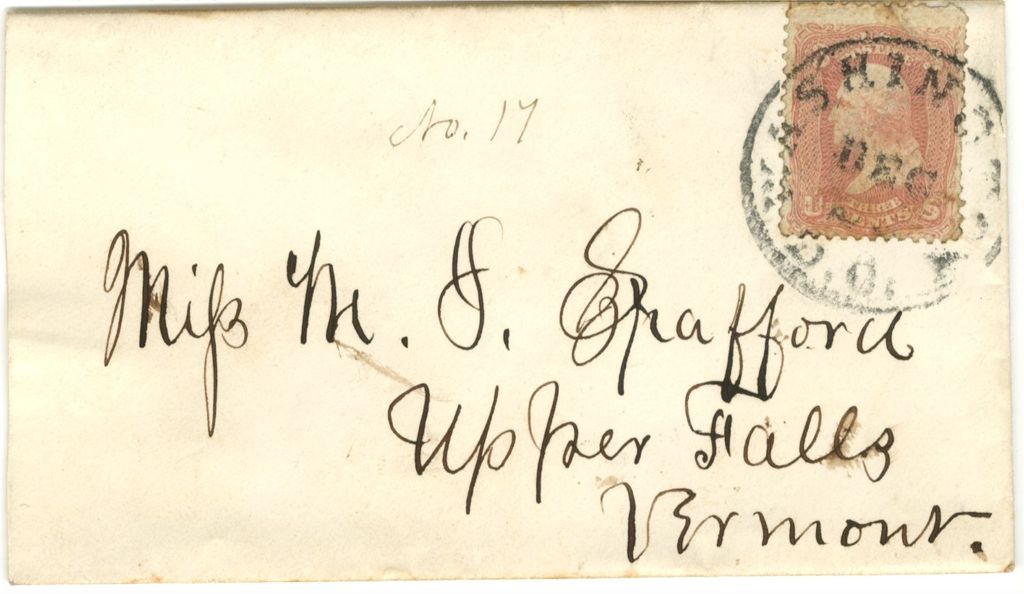 No. 17
WASHINGTON
DEC
D.C.
THREE
CENTS
U S
Miſs M. J. Spafford
Upper Falls
Vermont.